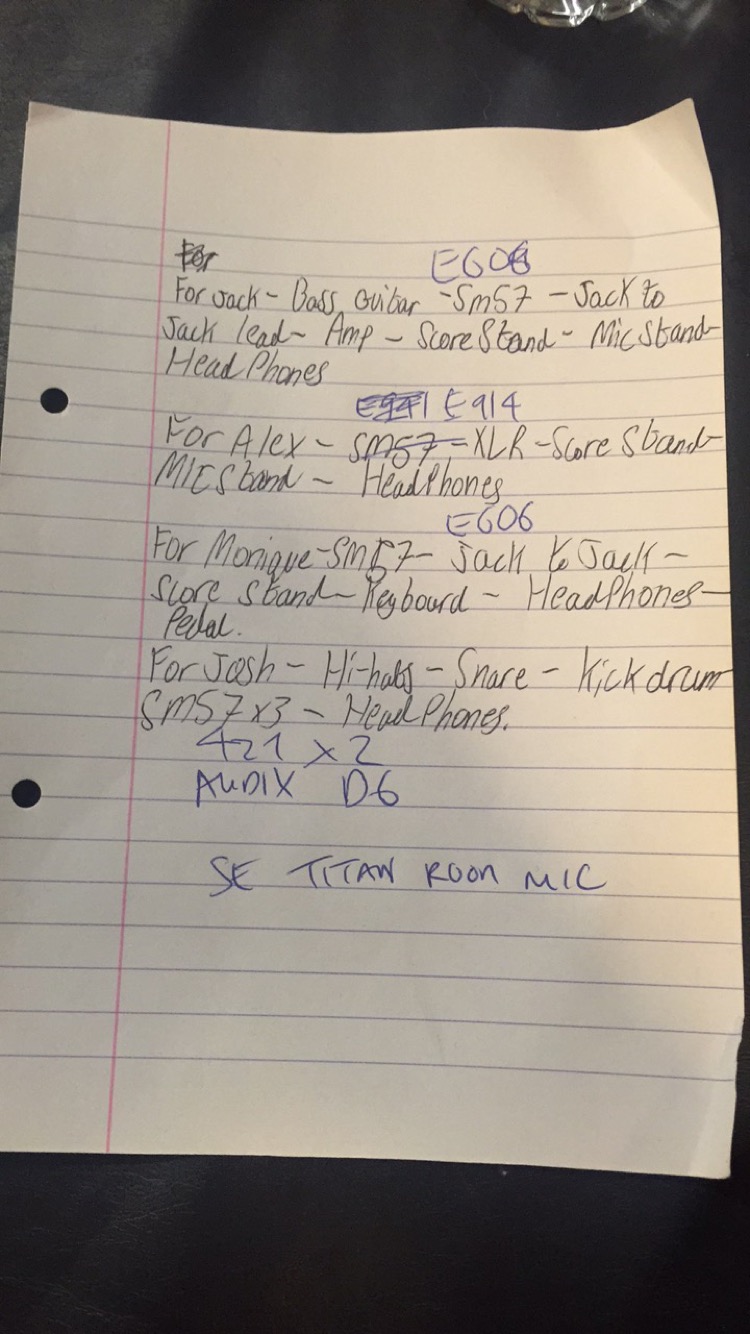 For
E606
For Jack - Bass Guitar - Sm57 - Jack to
Jack lead - Amp - Score Stand - Mic Stand -
HeadPhones
E914
For Alex - SM57 - XLR - Score Stand -
MIC Stand - HeadPhones
E606
For Monique - SM57 - Jack to Jack -
Score Stand - Keyboard - HeadPhones -
Pedal.
For Josh - Hi-hats - Snare - Kick drum
Sm57 x3 - HeadPhones.
421 x 2
AUDIX D6
SE TITAN ROOM MIC